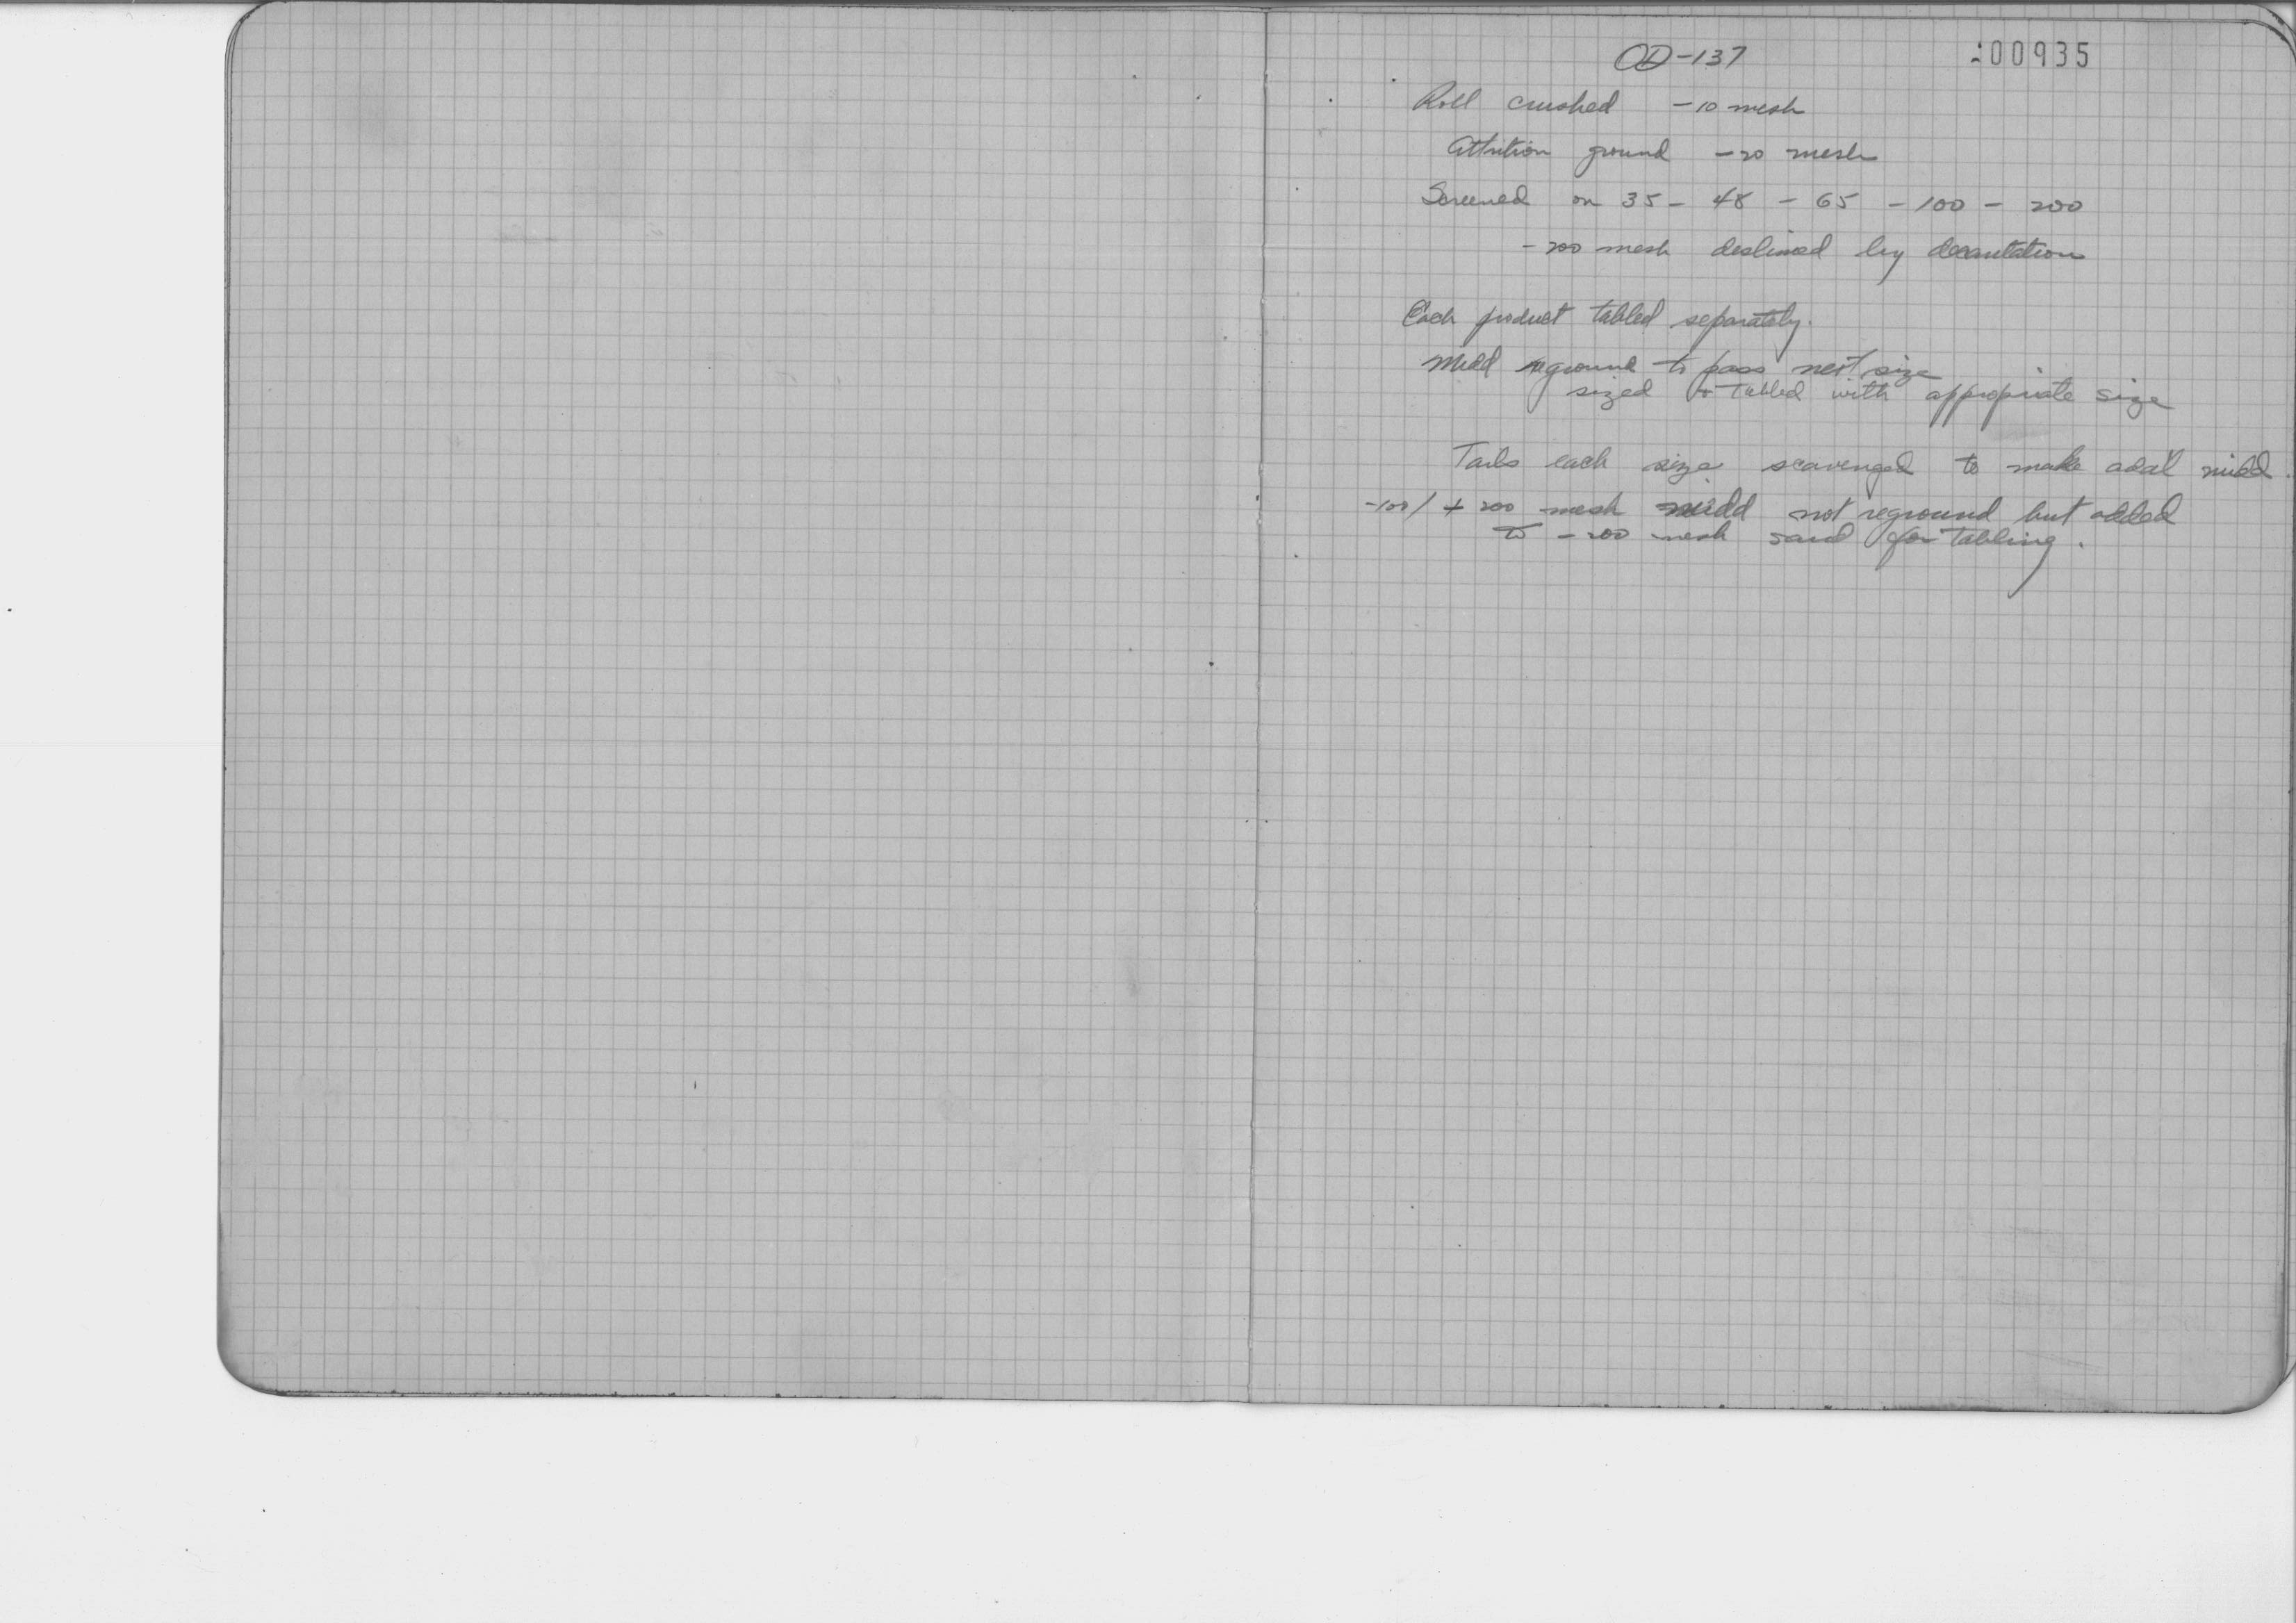 OD-137
:00935
Roll crushed -10 mesh
Attrition ground -20 mesh
Screened on 35 - 48 - 65 - 100 - 200
-200 mesh deslimed by decantation
Each product tabled separately.
Midd reground to pass next size
sized + tabled with appropriate size
Tails each size scavenged to make add'l midd.
-100/+200 mesh midd not reground but added
to -200 mesh sand for tabling.